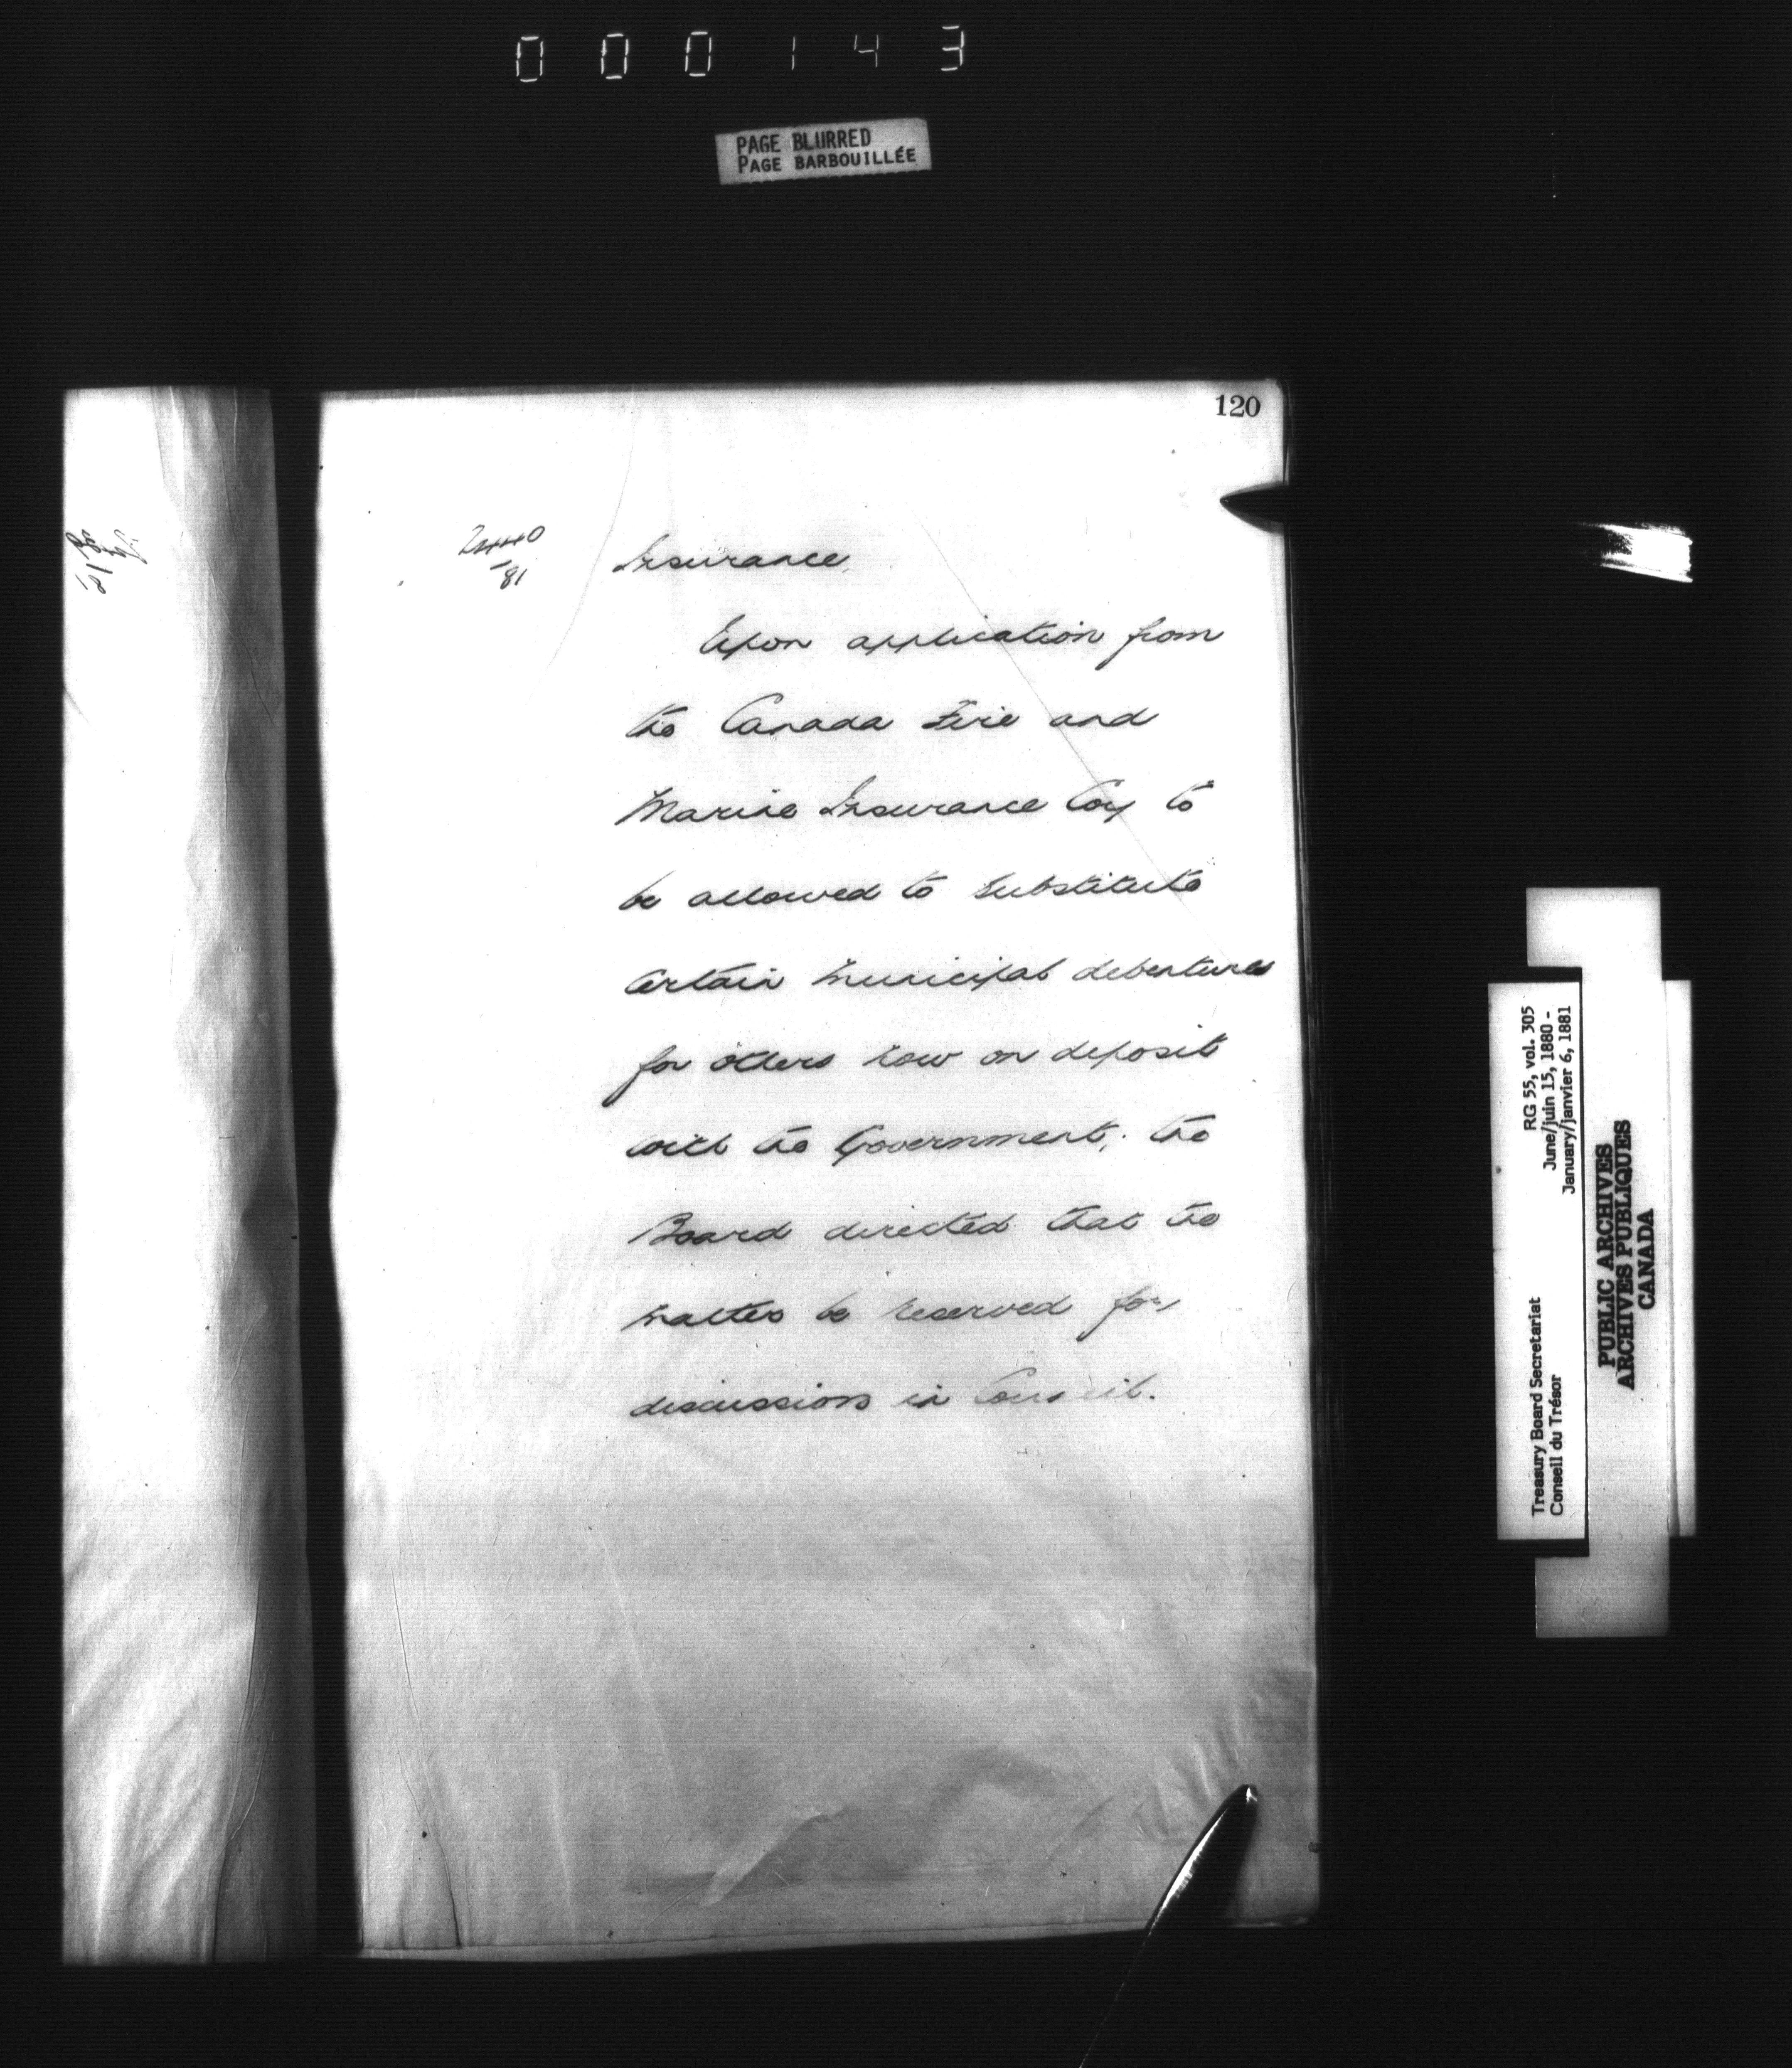 0 0 0 1 4 3
PAGE BLURRED
PAGE BARBOUILLÉE
120
Insurance.
Upon application from
the Canada Fire and
Marine Insurance Coy to
be allowed to substitute
certain municipal debentures
for others now on deposit
with the Government; the
Board directed that the
matter be reserved for
discussion in Council.
RG 55, vol. 305
June/juin 15, 1880 -
January/janvier 6, 1881
Treasury Board Secretariat
Conseil du Trésor
PUBLIC ARCHIVES
ARCHIVES PUBLIQUES
CANADA